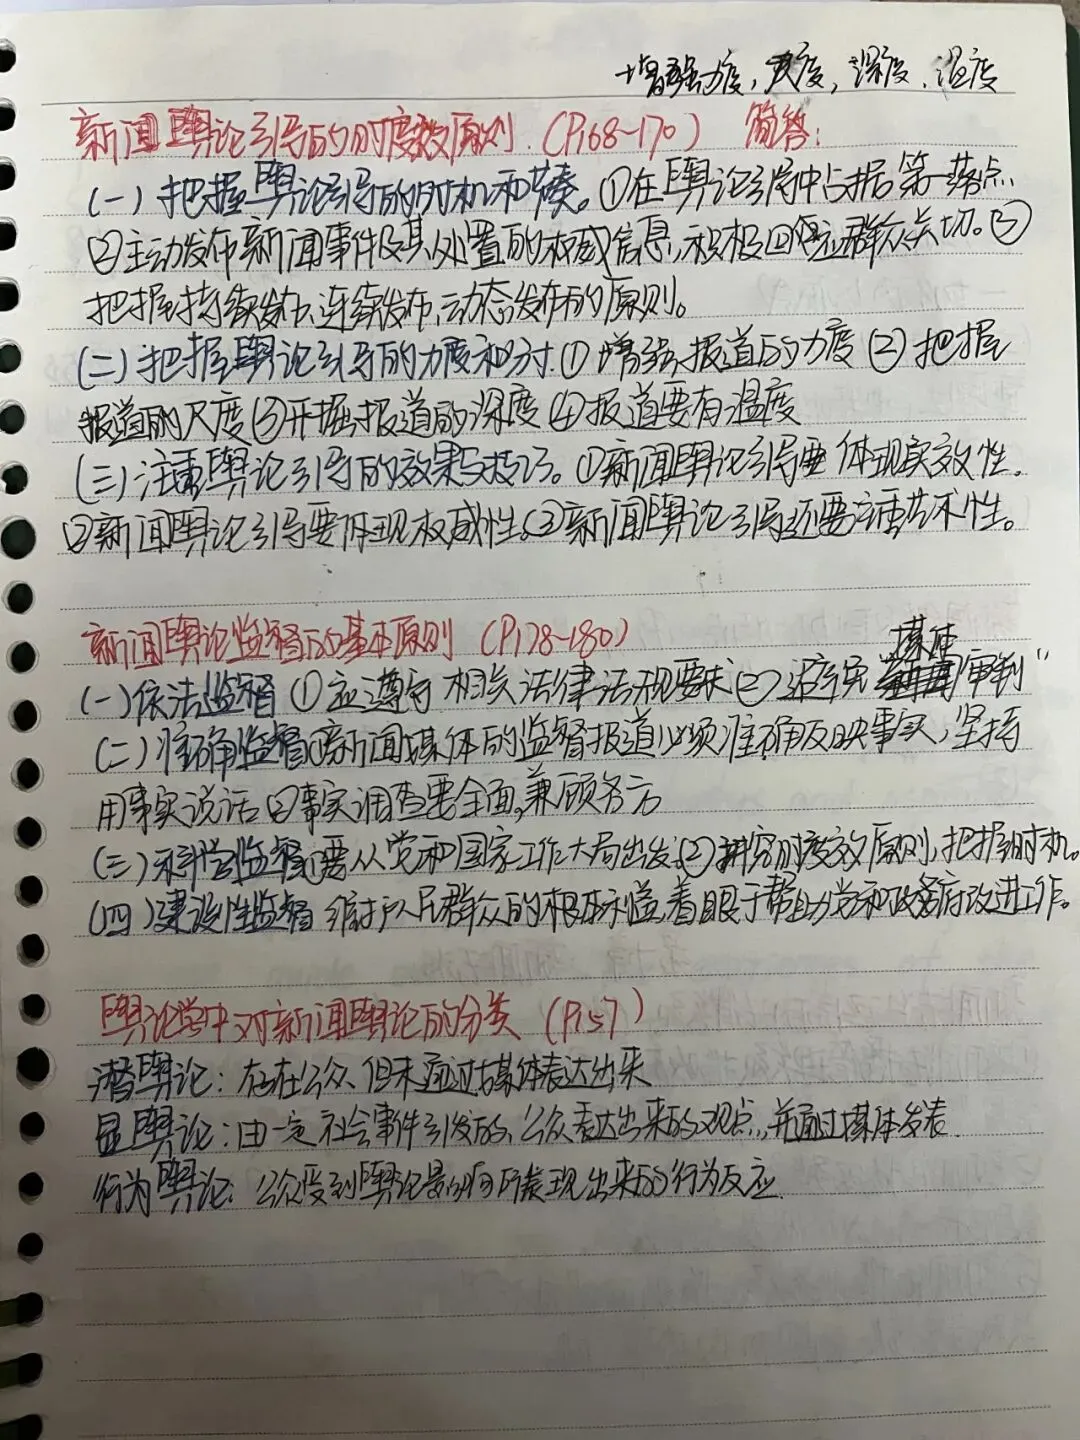 增强力度,尺度,深度,温度
新闻舆论引导的时度效原则.(P168~170) 简答:
(一)把握舆论引导的时机和节奏。①在舆论引导中占据第一落点.
②主动发布新闻事件及其处置的权威信息,积极回应群众关切。③
把握持续发布、连续发布、动态发布的原则。
(二)把握舆论引导的力度和分寸.①增强报道的力度②把握
报道的尺度③开掘报道的深度④报道要有温度
(三)注重舆论引导的效果与技巧。①新闻舆论引导要体现实效性.
②新闻舆论引导要体现权威性。③新闻舆论引导还要注重艺术性。
新闻舆论监督的基本原则(P178~180)
媒体
(一)依法监督①应遵守相关法律法规要求②避免审判"
(二)准确监督①新闻媒体的监督报道必须准确反映事实,坚持
用事实说话②事实调查要全面,兼顾各方
(三)科学监督①要从党和国家工作大局出发②讲究时度效原则,把握时机。
(四)建设性监督 维护人民群众的根本利益,着眼于帮助党和政府改进工作。
舆论学中对新闻舆论的分类(P157)
潜舆论:存在公众、但未通过媒体表达出来
显舆论:由一定社会事件引发的、公众表达出来的观点,并通过媒体发表.
行为舆论:公众受到舆论影响所表现出来的行为反应.